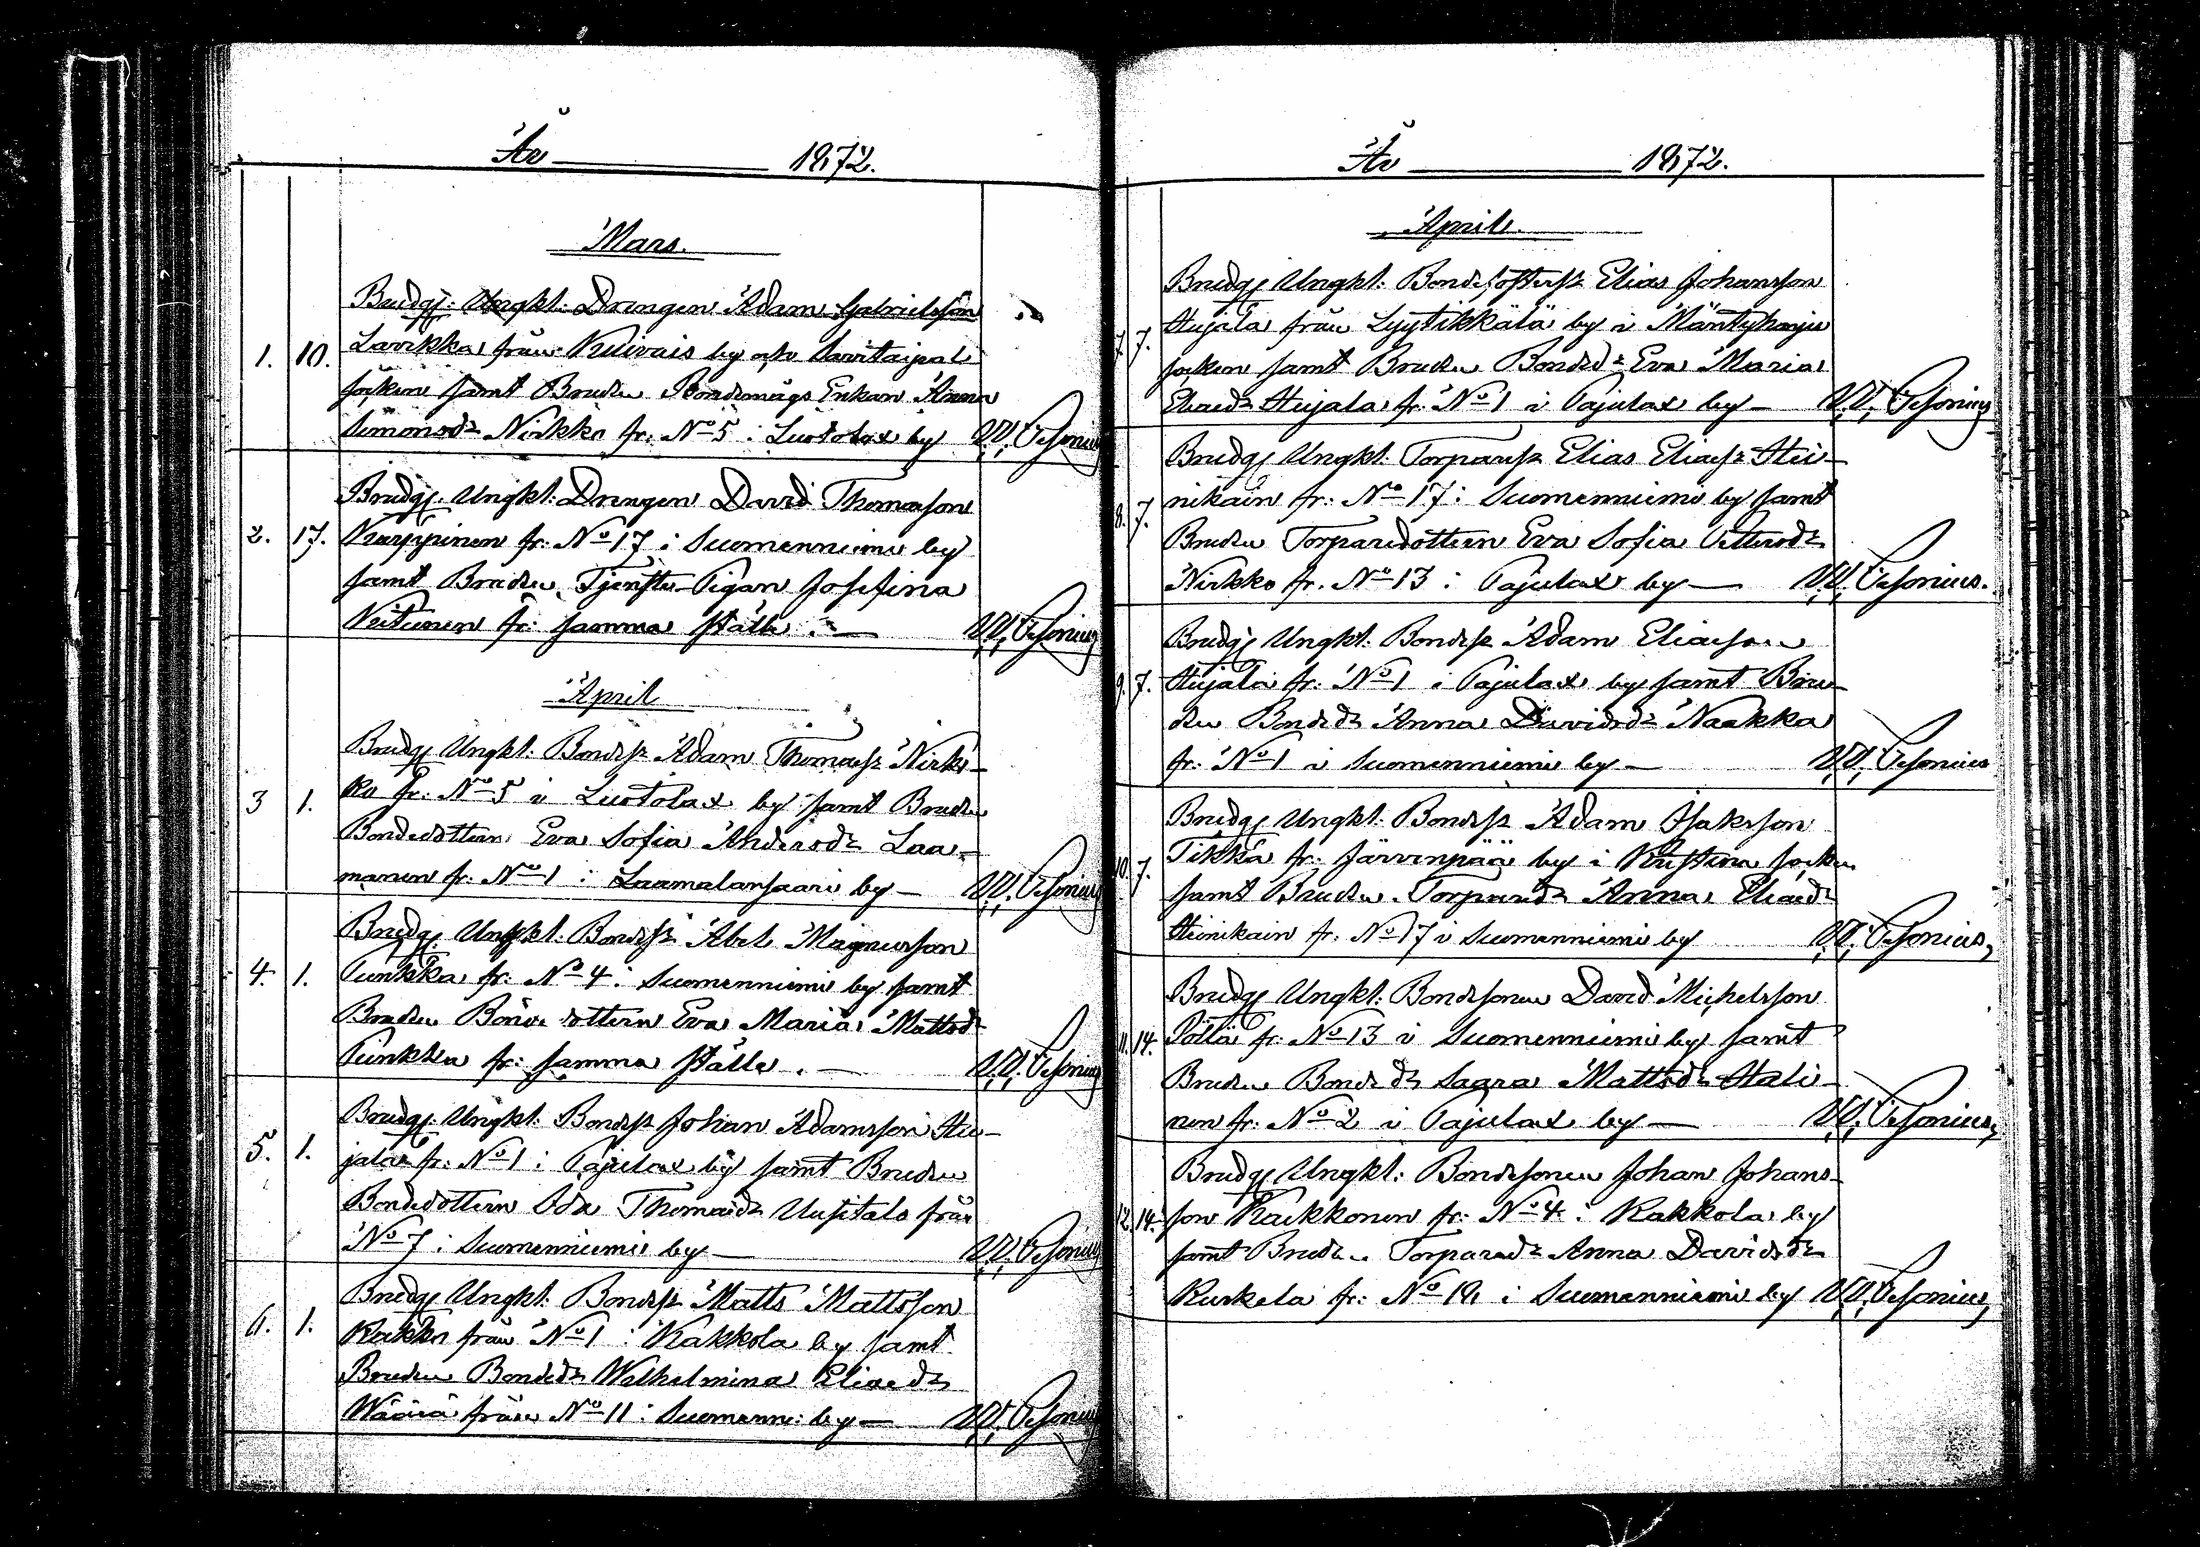 År 1872.
Mars.
1. 10. Brudgj: Ungkl: Drängen Adam Gabrielsson
Lavikka från Kuivais by af Savitaipale
socken samt Bruden Bondemågs Enkan Anna
Simonsdr Nirkko fr: No 5 i Luotolax by
2. 17. Brudgj. Ungkl: Drengen David Thomasson
Karppinen fr: No 17 i Suomenniemi by
samt Bruden Tjenste Pigan Josefina
fr: samma ställe.
April
3 1. Brudgj Ungkl: Bondess Adam Thomass Nirk-
ko fr: No 5 i Luotolax by samt Bruden
Bondedottern Eva Sofia Andersdr Laa-
manen fr: No 1 i Laamalansaari by
4. 1. Brudgj. Ungkl: Bondess Abel Magnusson
Punkka fr: No 4 i Suomenniemi by samt
Bruden Bondedottern Eva Maria Mattsdr
Punkka fr: samma ställe.
5. 1. Brudgj. Ungkl: Bondess Johan Adamsson Hu-
jala fr: No 1 i Pajulax by samt Bruden
Bondedottern Ida Thomasdr Uusitalo från
No 7 i Suomenniemi by
6. 1. Brudgj Ungkl: Bondess Matts Mattsson
Kakko från No 1 i Kakkola by samt
Bruden Bondedr Wilhelmina Eliaedr
Wäärä från No 11 i Suomenni: by
År 1872.
April.
7. 7. Brudgj Ungkl: Elias Johansson
Hujala från Lyytikkälä by i Mäntyharju
socken samt Bruden Bondedr Eva Maria
Eliaedr Hujala fr: No 1 i Pajulax by
8. 7. Brudgj Ungkl: Torparess Elias Eliaess Hei-
nikain fr: No 17 i Suomenniemi by samt
Bruden Torparedottern Eva Sofia
Nirkko fr. No 13 i Pajulax by
9. 7. Brudgj Ungkl: Bondess Adam Eliasson
Hujala fr: No 1 i Pajulax by samt Bru-
den Bondedr Anna Davidsdr Naakka
fr: No 1 i Suomenniemi by
10. 7. Brudgj Ungkl: Bondess Adam Isaksson
Tikka fr: Järvenpää by i Kristina socken
samt Bruden Torparedr Anna Eliaedr
Heinikain fr: No 17 i Suomenniemi by
11. 14. Brudgj Ungkl: Bondesonen David Michelsson
Pöllä fr: No 13 i Suomenniemi by samt
Bruden Bondedr Saara Mattsdr Hali-
nen fr: No 2 i Pajulax by
12. 14. Brudgj Ungkl: Bondesonen Johan Johans-
son Kaikkonen fr: No 4 i Kakkola by
samt Bruden Torparedr Anna Davidsdr
Kurkela fr: No 18 i Suomenniemi by